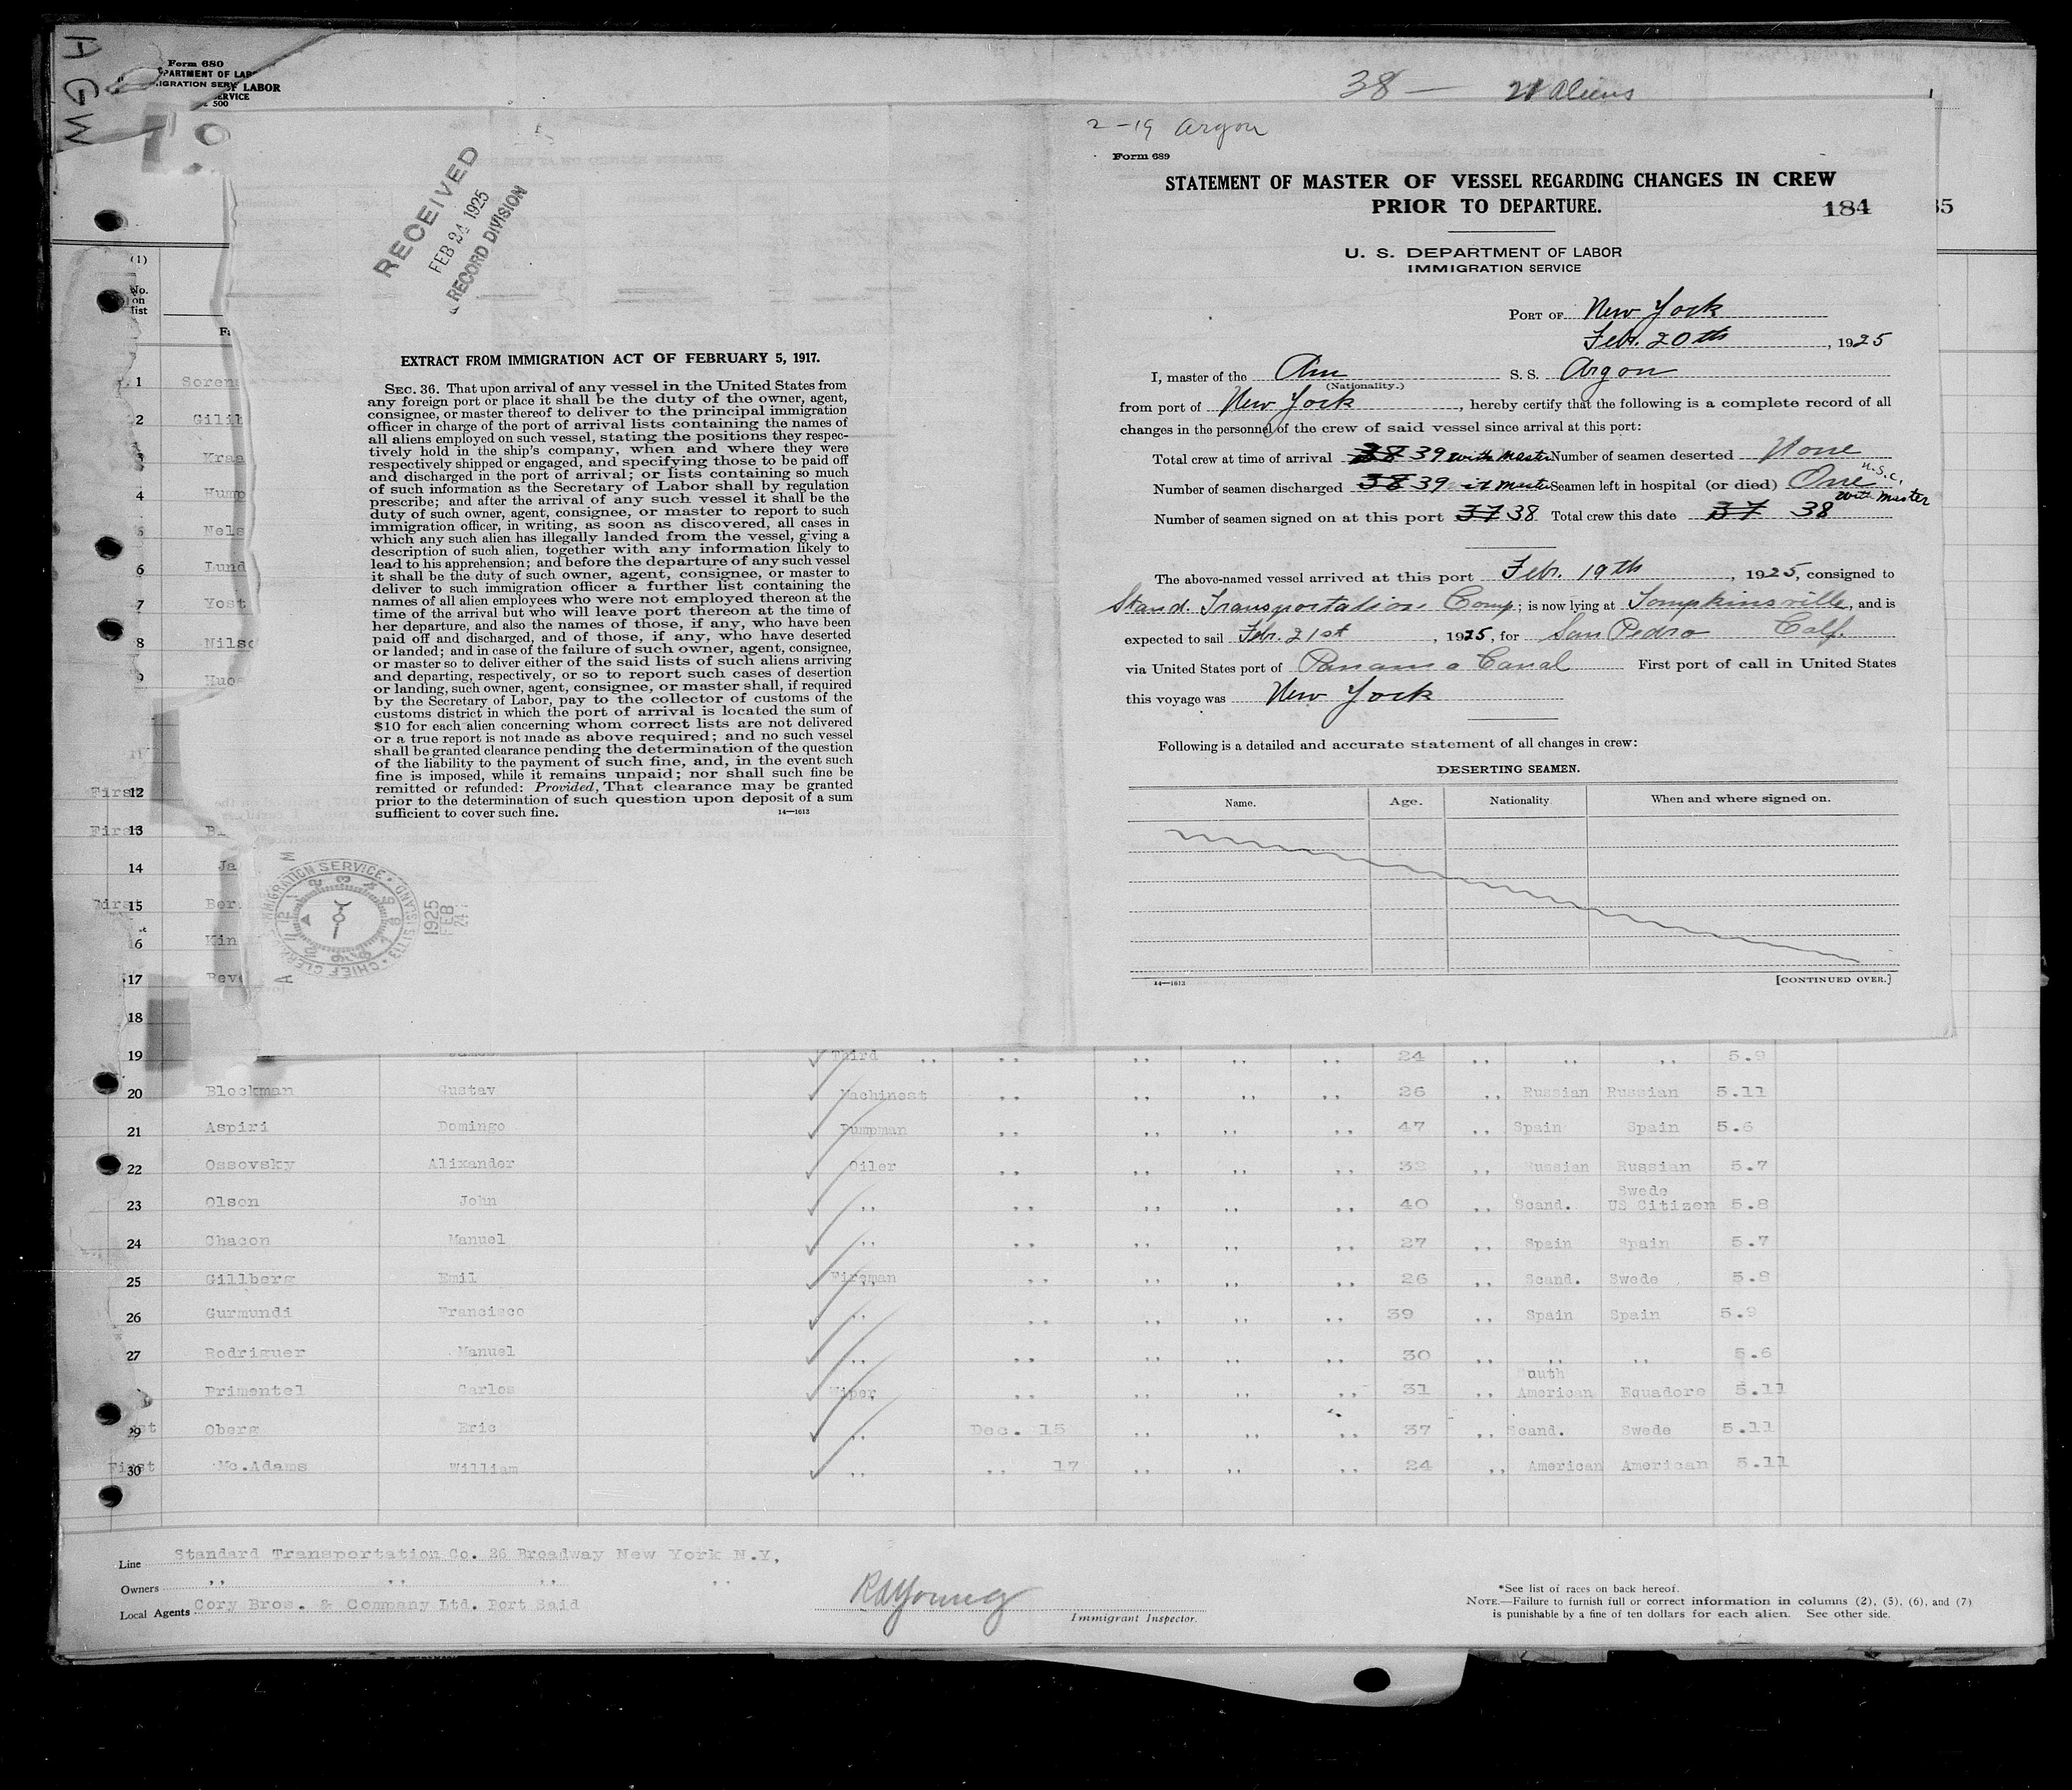 A G W
Form 680
38 — 21 Aliens
2-19 Argon
Form 689
STATEMENT OF MASTER OF VESSEL REGARDING CHANGES IN CREW
PRIOR TO DEPARTURE.
184
35
U. S. DEPARTMENT OF LABOR
IMMIGRATION SERVICE
PORT OF New York
Feb. 20th, 1925
I, master of the Am S. S. Argon
(Nationality.)
from port of New York, hereby certify that the following is a complete record of all
changes in the personnel of the crew of said vessel since arrival at this port:
Total crew at time of arrival 38 39 with Master Number of seamen deserted None
Number of seamen discharged 38 39 Master Seamen left in hospital (or died) One U.S.C.
Number of seamen signed on at this port 37 38 Total crew this date 37 38 with Master
The above-named vessel arrived at this port Feb. 19th, 1925, consigned to
Stand. Transportation Comp; is now lying at Tompkinsville, and is
expected to sail Feb. 21st, 1925, for San Pedro Calf.
via United States port of Panama Canal First port of call in United States
this voyage was New York
Following is a detailed and accurate statement of all changes in crew:
DESERTING SEAMEN.
Name. Age. Nationality. When and where signed on.
14—1613
[CONTINUED OVER.]
RECEIVED
FEB 24 1925
RECORD DIVISION
EXTRACT FROM IMMIGRATION ACT OF FEBRUARY 5, 1917.
SEC. 36. That upon arrival of any vessel in the United States from
any foreign port or place it shall be the duty of the owner, agent,
consignee, or master thereof to deliver to the principal immigration
officer in charge of the port of arrival lists containing the names of
all aliens employed on such vessel, stating the positions they respec-
tively hold in the ship's company, when and where they were
respectively shipped or engaged, and specifying those to be paid off
and discharged in the port of arrival; or lists containing so much
of such information as the Secretary of Labor shall by regulation
prescribe; and after the arrival of any such vessel it shall be the
duty of such owner, agent, consignee, or master to report to such
immigration officer, in writing, as soon as discovered, all cases in
which any such alien has illegally landed from the vessel, giving a
description of such alien, together with any information likely to
lead to his apprehension; and before the departure of any such vessel
it shall be the duty of such owner, agent, consignee, or master to
deliver to such immigration officer a further list containing the
names of all alien employees who were not employed thereon at the
time of the arrival but who will leave port thereon at the time of
her departure, and also the names of those, if any, who have been
paid off and discharged, and of those, if any, who have deserted
or landed; and in case of the failure of such owner, agent, consignee,
or master so to deliver either of the said lists of such aliens arriving
and departing, respectively, or so to report such cases of desertion
or landing, such owner, agent, consignee, or master shall, if required
by the Secretary of Labor, pay to the collector of customs of the
customs district in which the port of arrival is located the sum of
$10 for each alien concerning whom correct lists are not delivered
or a true report is not made as above required; and no such vessel
shall be granted clearance pending the determination of the question
of the liability to the payment of such fine, and, in the event such
fine is imposed, while it remains unpaid; nor shall such fine be
remitted or refunded: Provided, That clearance may be granted
prior to the determination of such question upon deposit of a sum
sufficient to cover such fine.
14—1613
IMMIGRATION SERVICE • ELLIS ISLAND • CHIEF CLERK
1925 FEB 24
(1)
No. on list
1 Soren
2 Gilib
3 Kraa
4 Hump
5 Nels
6 Lund
7 Yost
8 Nilso
9 Huo
11
First 12
First 13 Bl
14 Ja
First 15 Ber
16 Kin
17 Beve
18
19 James Third ,, ,, ,, ,, ,, 24 ,, ,, ,, 5.9
20 Blockman Gustav Machinest ,, ,, ,, ,, 26 ,, Russian Russian 5.11
21 Aspiri Domingo Pumpman ,, ,, ,, ,, 47 ,, Spain Spain 5.6
22 Ossovsky Alixander Oiler ,, ,, ,, ,, 32 ,, Russian Russian 5.7
23 Olson John ,, ,, ,, ,, ,, 40 ,, Scand. Swede US Citizen 5.8
24 Chacon Manuel ,, ,, ,, ,, ,, 27 ,, Spain Spain 5.7
25 Gillberg Emil Fireman ,, ,, ,, ,, 26 ,, Scand. Swede 5.8
26 Gurmundi Francisco ,, ,, ,, ,, ,, 39 ,, Spain Spain 5.9
27 Rodriguer Manuel ,, ,, ,, ,, ,, 30 ,, ,, ,, 5.6
Primentel Carlos Wiper ,, ,, ,, ,, 31 ,, South American Equadore 5.11
29 Oberg Eric ,, Dec. 15 ,, ,, ,, 37 ,, Scand. Swede 5.11
First 30 Mc.Adams William ,, ,, 17 ,, ,, ,, 24 ,, American American 5.11
Line Standard Transportation Co. 26 Broadway New York N.Y.
Owners ,, ,, ,, ,,
Local Agents Cory Bros. & Company Ltd. Port Said
RAYoung
Immigrant Inspector.
*See list of races on back hereof.
NOTE.—Failure to furnish full or correct information in columns (2), (5), (6), and (7)
is punishable by a fine of ten dollars for each alien. See other side.